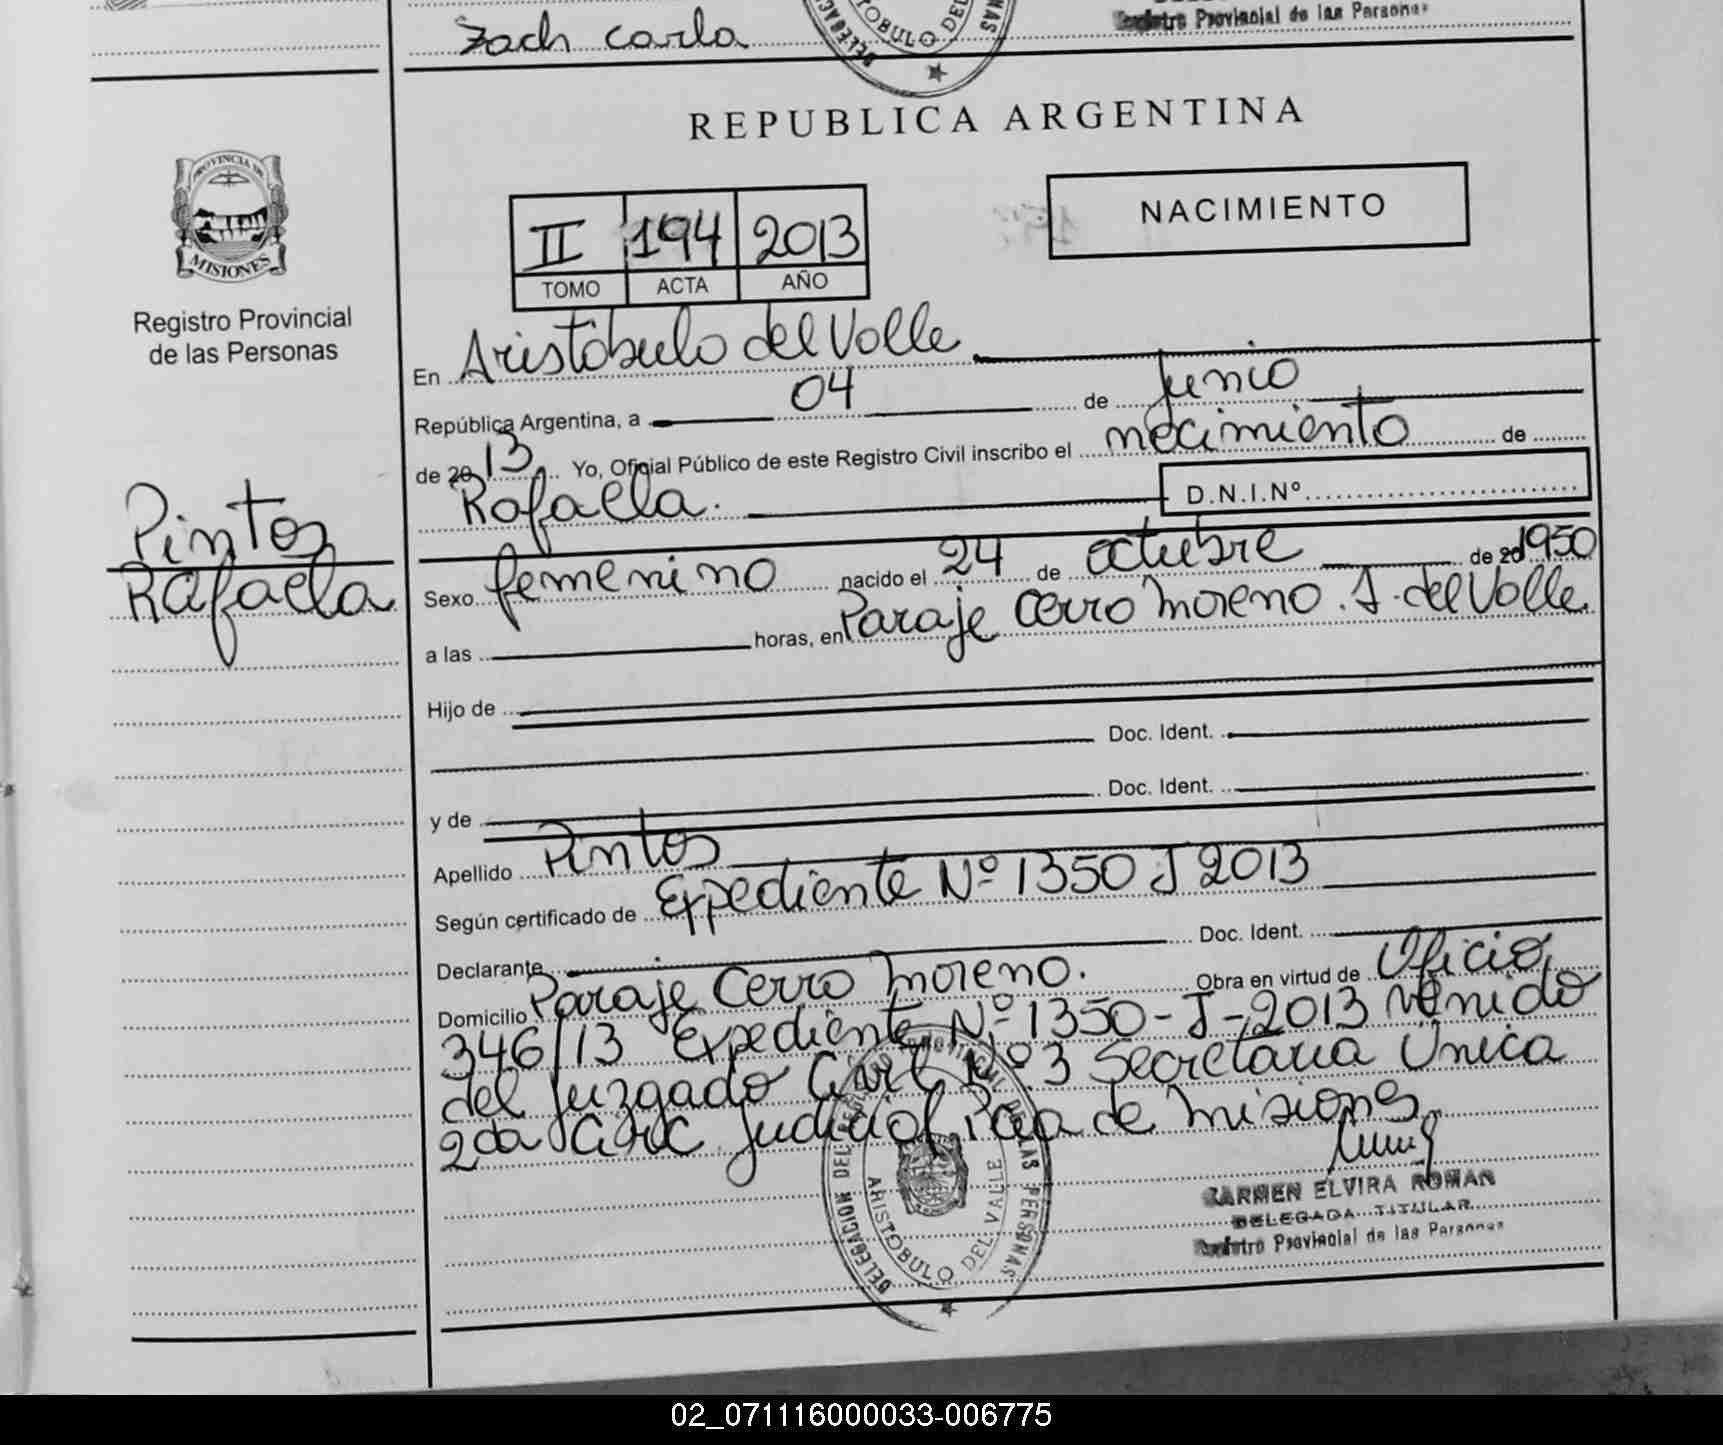 Zach Carla
Registro Provincial de las Personas
REPUBLICA ARGENTINA
PROVINCIA DE
MISIONES
Registro Provincial
de las Personas
II 194 2013
TOMO ACTA AÑO
NACIMIENTO
En Aristóbulo del Valle
República Argentina, a 04 de Junio
de 2013. Yo, Oficial Público de este Registro Civil inscribo el nacimiento de
Rafaela. D.N.I.Nº
Pintos
Rafaela
Sexo femenino nacido el 24 de octubre de 20 1950
a las horas, en Paraje Cerro Moreno. A. del Valle.
Hijo de
Doc. Ident.
Doc. Ident.
y de
Apellido Pintos
Según certificado de Expediente Nº 1350 J 2013
Declarante Doc. Ident.
Domicilio Paraje Cerro Moreno. Obra en virtud de Oficio
346/13 Expediente Nº 1350-J-2013 venido
del Juzgado Civil Nº 3 Secretaria Unica
2da Circ Judicial Pcia de Misiones
DELEGACION DEL REGISTRO PROVINCIAL DE LAS PERSONAS
ARISTOBULO DEL VALLE
CARMEN ELVIRA ROMAN
DELEGADA TITULAR
Registro Provincial de las Personas
02_071116000033-006775